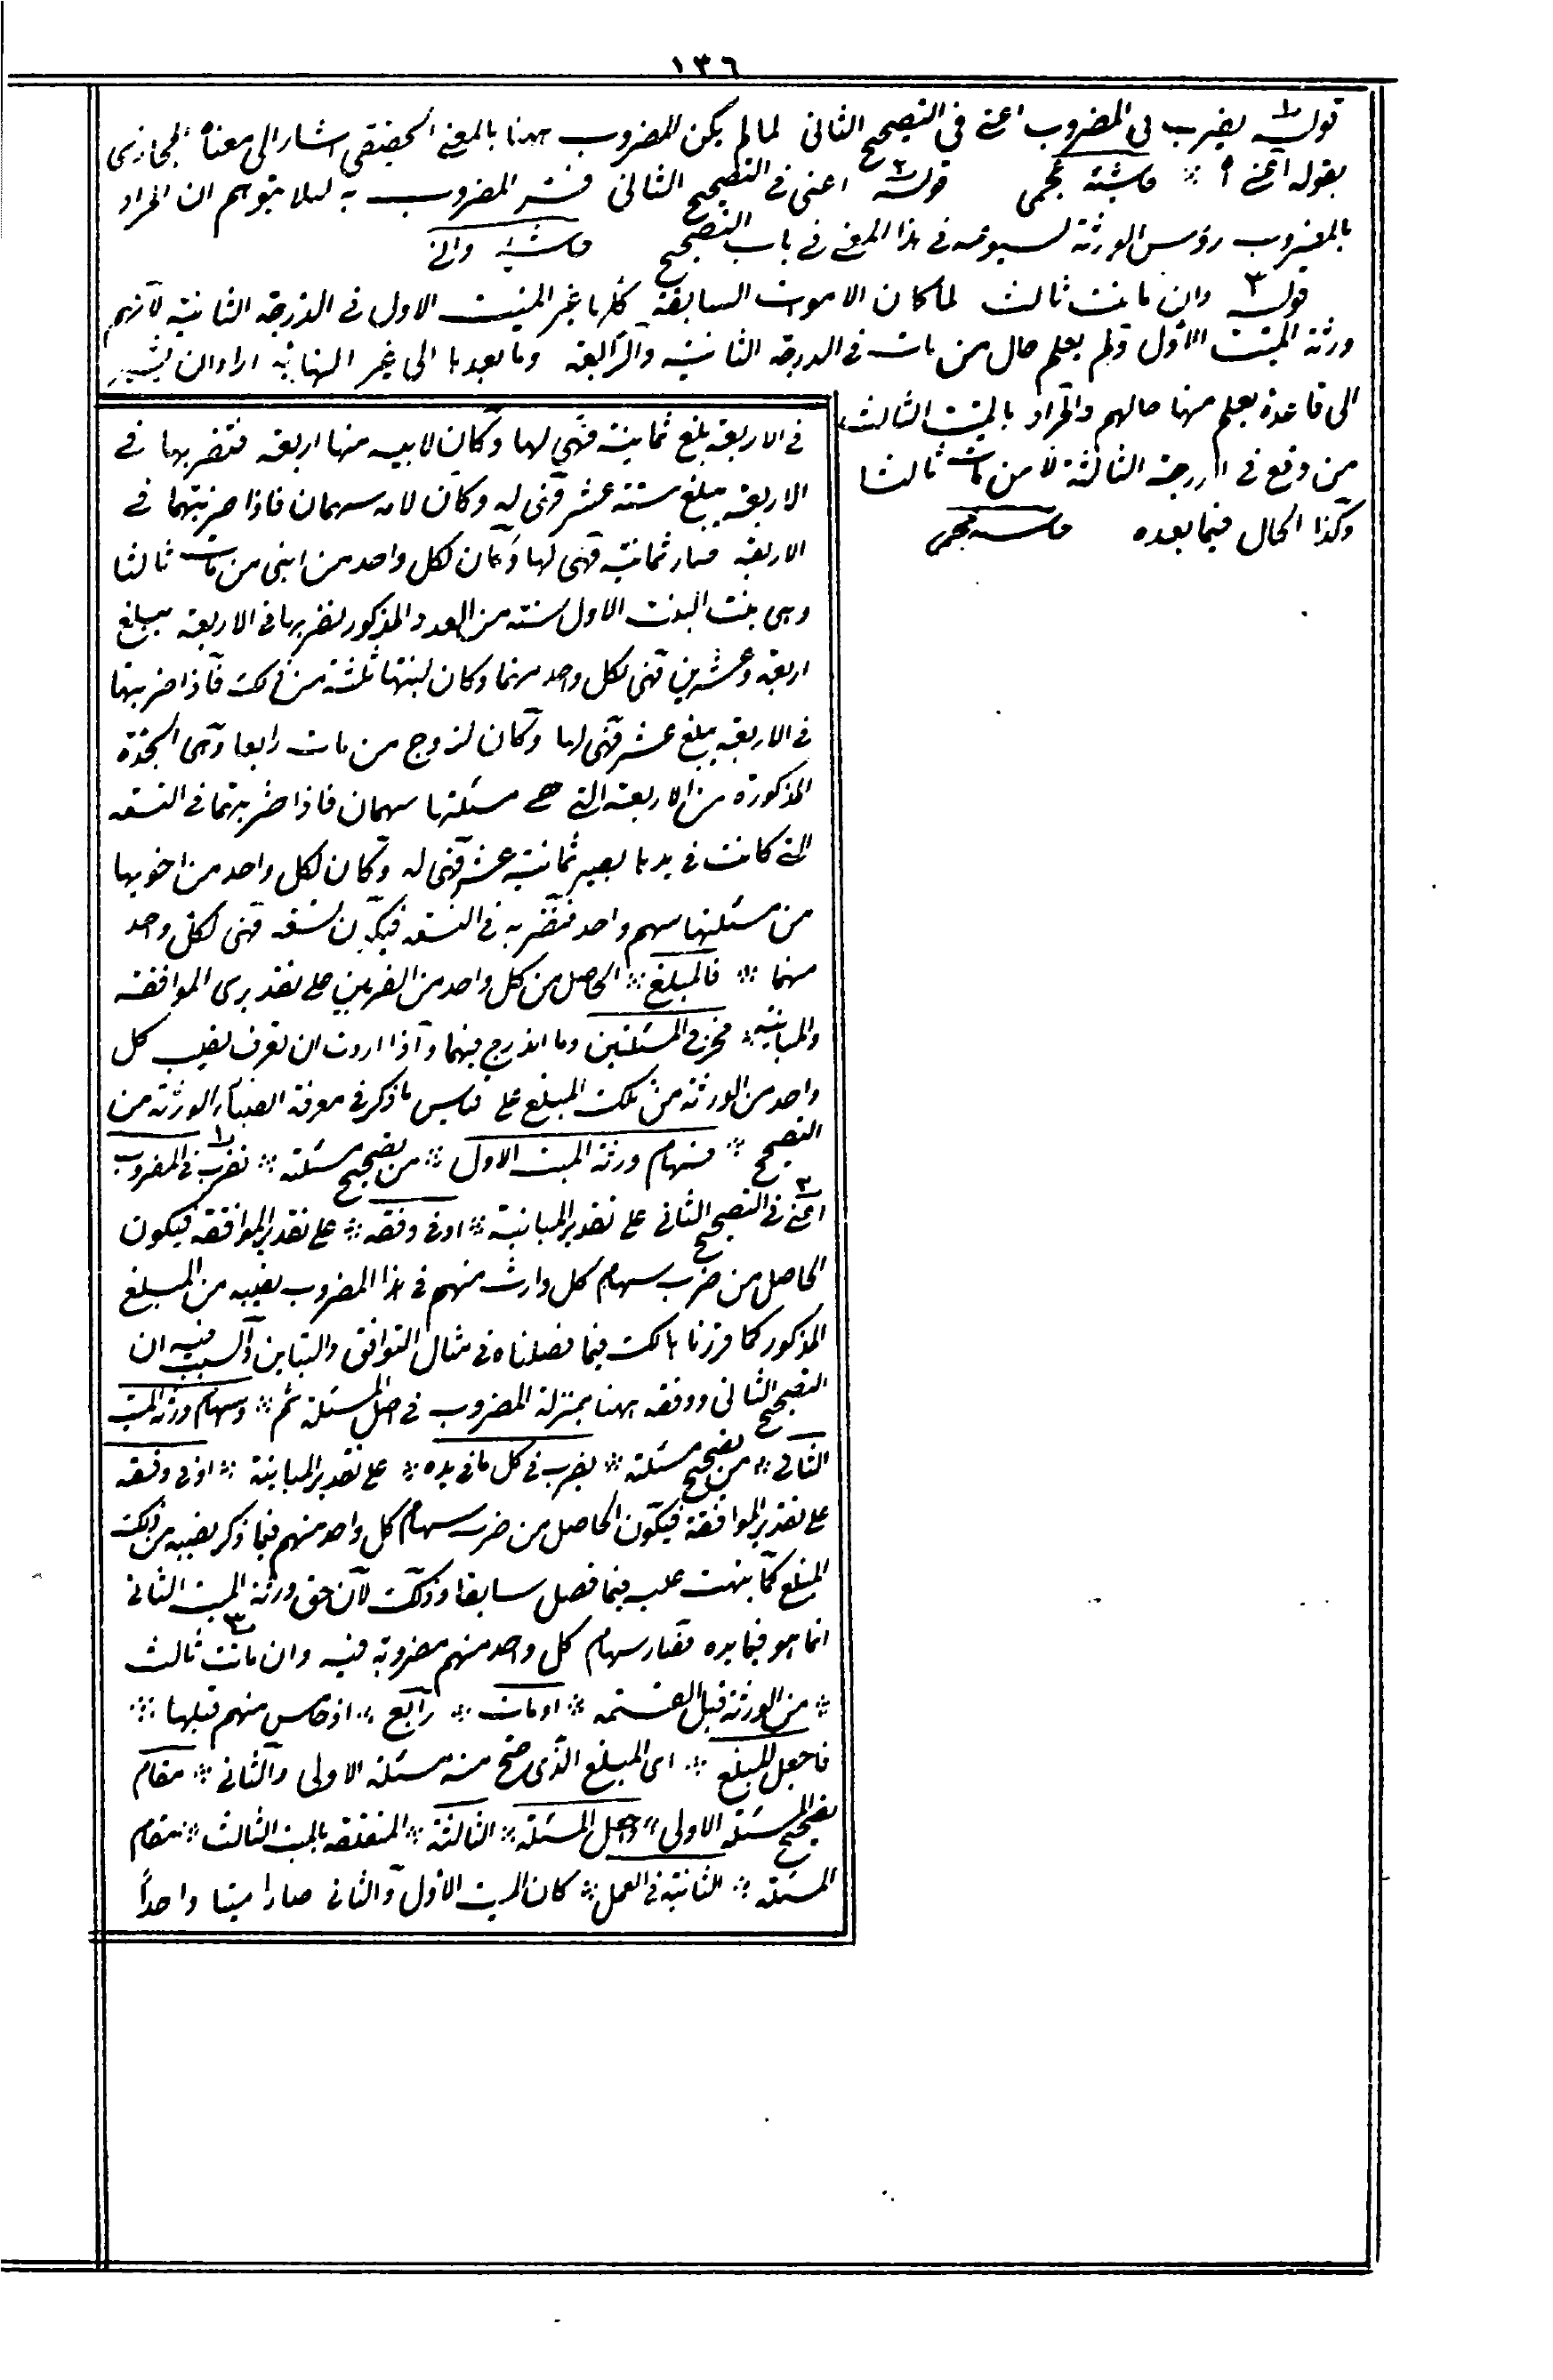 ١٣٦
قوله يضرب فى المضروب اعنى فى التصحيح الثانى لما لم يكن المضروب ههنا بالمعنى الحقيقى اشار الى معناه المجازى
بقوله اعنى ؟ ⁂ حاشية عجمى قوله ٢ اعنى فى التصحيح الثانى فسر المضروب به لئلا يتوهم ان المراد
بالمضروب رؤس الورثة لسبوقه فى هذا المعنى فى باب التصحيح حاشية والى
قوله ٣ وان مات ثالث لما كان الاموات السابقة كلها غير الميت الاول فى الدرجة الثانية لانهم
ورثة الميت الاول ولم يعلم حال من مات فى الدرجة الثانية والرابعة وما بعدها الى غير النهاية اراد ان يشير
الى قاعدة يعلم منها حالهم والمراد بالميت الثالث
من وقع فى الدرجة الثالثة لا من مات ثالثا
وكذا الحال فيما بعده حاشية عجمى
فى الاربعة بلغ ثمانية فهى لها وكان لابيه منها اربعة فتضربها فى
الاربعة يبلغ ستة عشر فهى له وكان لامه سهمان فاذا ضربتهما فى
الاربعة صار ثمانية فهى لها وكان لكل واحد من ابنى من مات ثالثا
وهى بنت البنت الاول ستة من العدد المذكور نضربها فى الاربعة يبلغ
اربعة وعشرين فهى لكل واحد منهما وكان لبنتها ثلثة من ذلك فاذا ضربتها
فى الاربعة يبلغ عشر فهى لها وكان لزوج من مات رابعا وهى الجدة
المذكورة من الاربعة التى هى مسئلتها سهمان فاذا ضربتهما فى التسعة
التى كانت فى يدها يصير ثمانية عشر فهى له وكان لكل واحد من اخويها
من مسئلتها سهم واحد فنضربه فى التسعة فيكون تسعة فهى لكل واحد
منهما ⁂ فالمبلغ ⁂ الحاصل من كل واحد من الضربين على تقديرى الموافقة
والمباينة ⁂ مخرج المسئلتين وما اندرج فيهما واذا اردت ان تعرف نصيب كل
واحد من الورثة من تلك المبلغ على قياس ما ذكر فى معرفة انصباء الورثة من
التصحيح ⁂ فسهام ورثة الميت الاول ⁂ من تصحيح مسئلته ⁂ تضرب فى المضروب
اعنى فى التصحيح الثانى على تقدير المباينة ⁂ او فى وفقه ⁂ على تقدير الموافقة فيكون
الحاصل من ضرب سهام كل وارث منهم فى هذا المضروب نصيبه من المبلغ
المذكور كما قررنا هالك فيما فصلناه فى مثال التوافق والتباين والسبب فيه ان
التصحيح الثانى ووفقه ههنا بمنزلة المضروب فى اصل المسئلة ثم ⁂ وسهام ورثة الميت
الثانى ⁂ من تصحيح مسئلته ⁂ يضرب فى كل ما فى يده ⁂ على تقدير المباينة ⁂ او فى وفقه
على تقدير الموافقة فيكون الحاصل من ضرب سهام كل واحد منهم فيما ذكر نصيبه من ذلك
المبلغ كما نبهت عليه فيما فصل سابقا وذلك لان حق ورثة الميت الثانى
انما هو فيما يده فصار سهام كل واحد منهم مضروبة فيه وان مات ثالث
⁂ من الورثة قبل القسمة ⁂ او مات ⁂ رابع ⁂ او خامس منهم قبلها ⁂
فاجعل المبلغ ⁂ اى المبلغ الذى صح منه مسئلة الاولى والثانى ⁂ مقام
تصحيح المسئلة الاولى ⁂ واجعل المسئلة ⁂ الثالثة ⁂ المتعلقة بالميت الثالث ⁂ مقام
المسئلة ⁂ الثانية فى العمل ⁂ كان الميت الاول والثانى صارا ميتا واحدًا